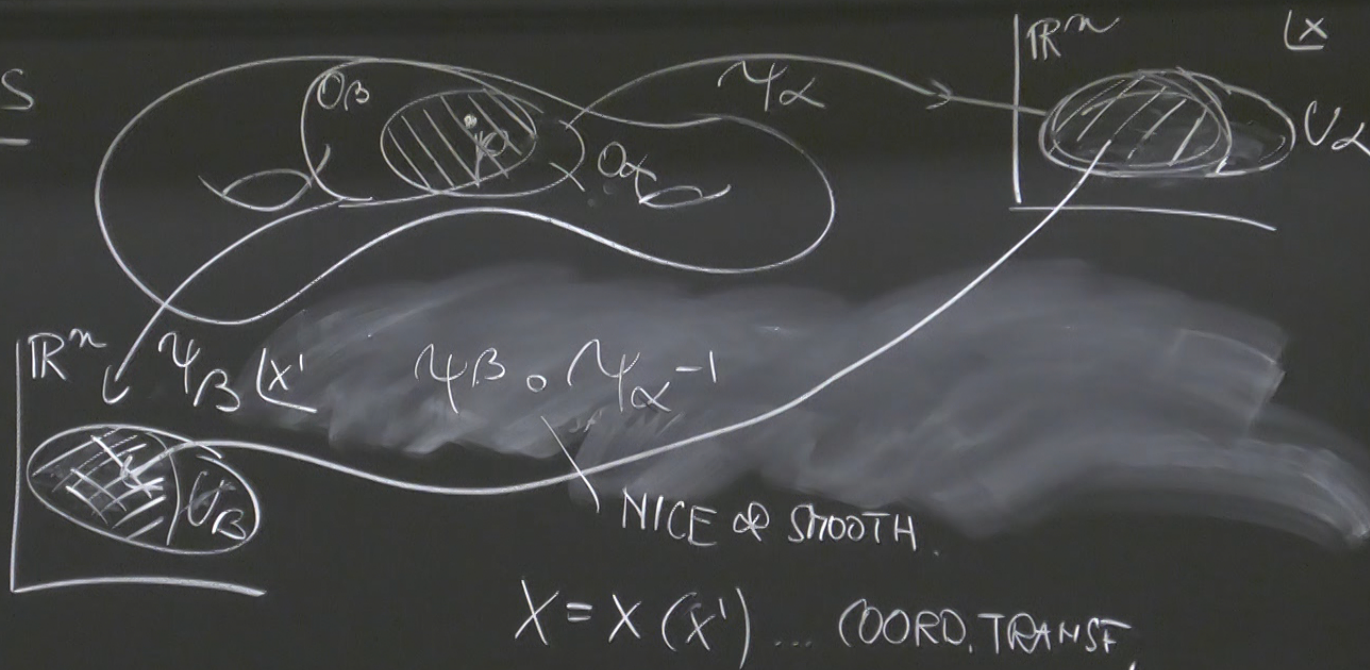 S
O_β
ψ_α
ℝⁿ
x
U_α
p
O_α
ℝⁿ
ψ_β
x'
ψ_β ∘ ψ_α⁻¹
U_β
NICE & SMOOTH.
X = X(X') ... COORD. TRANSF.